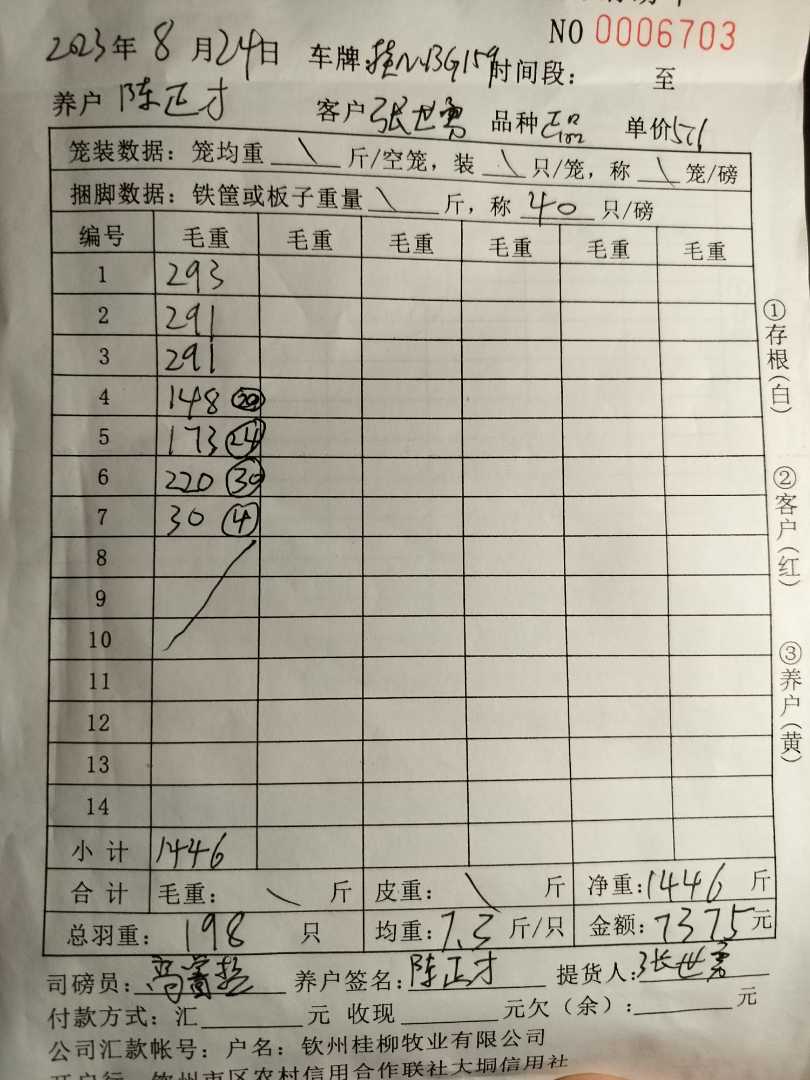 NO 0006703
2023年 8月24日 车牌:桂N·BG159时间段: 至
养户 陈正才 客户张世勇 品种 单价5.1
笼装数据: 笼均重 \ 斤/空笼, 装 \ 只/笼, 称 \ 笼/磅
捆脚数据: 铁筐或板子重量 \ 斤, 称 40 只/磅
编号 毛重 毛重 毛重 毛重 毛重 毛重
1 293
2 291
3 291
4 148 20
5 173 24
6 220 30
7 30 4
8
9
10
11
12
13
14
小计 1446
合计 毛重: \ 斤 皮重: \ 斤 净重:1446 斤
总羽重: 198 只 均重:7.3 斤/只 金额:7375元
司磅员: 养户签名:陈正才 提货人:张世勇
付款方式: 汇 元 收现 元欠(余): 元
公司汇款帐号: 户名: 钦州桂柳牧业有限公司
开户行: 钦州市区农村信用合作联社大垌信用社
①存根(白)
②客户(红)
③养户(黄)